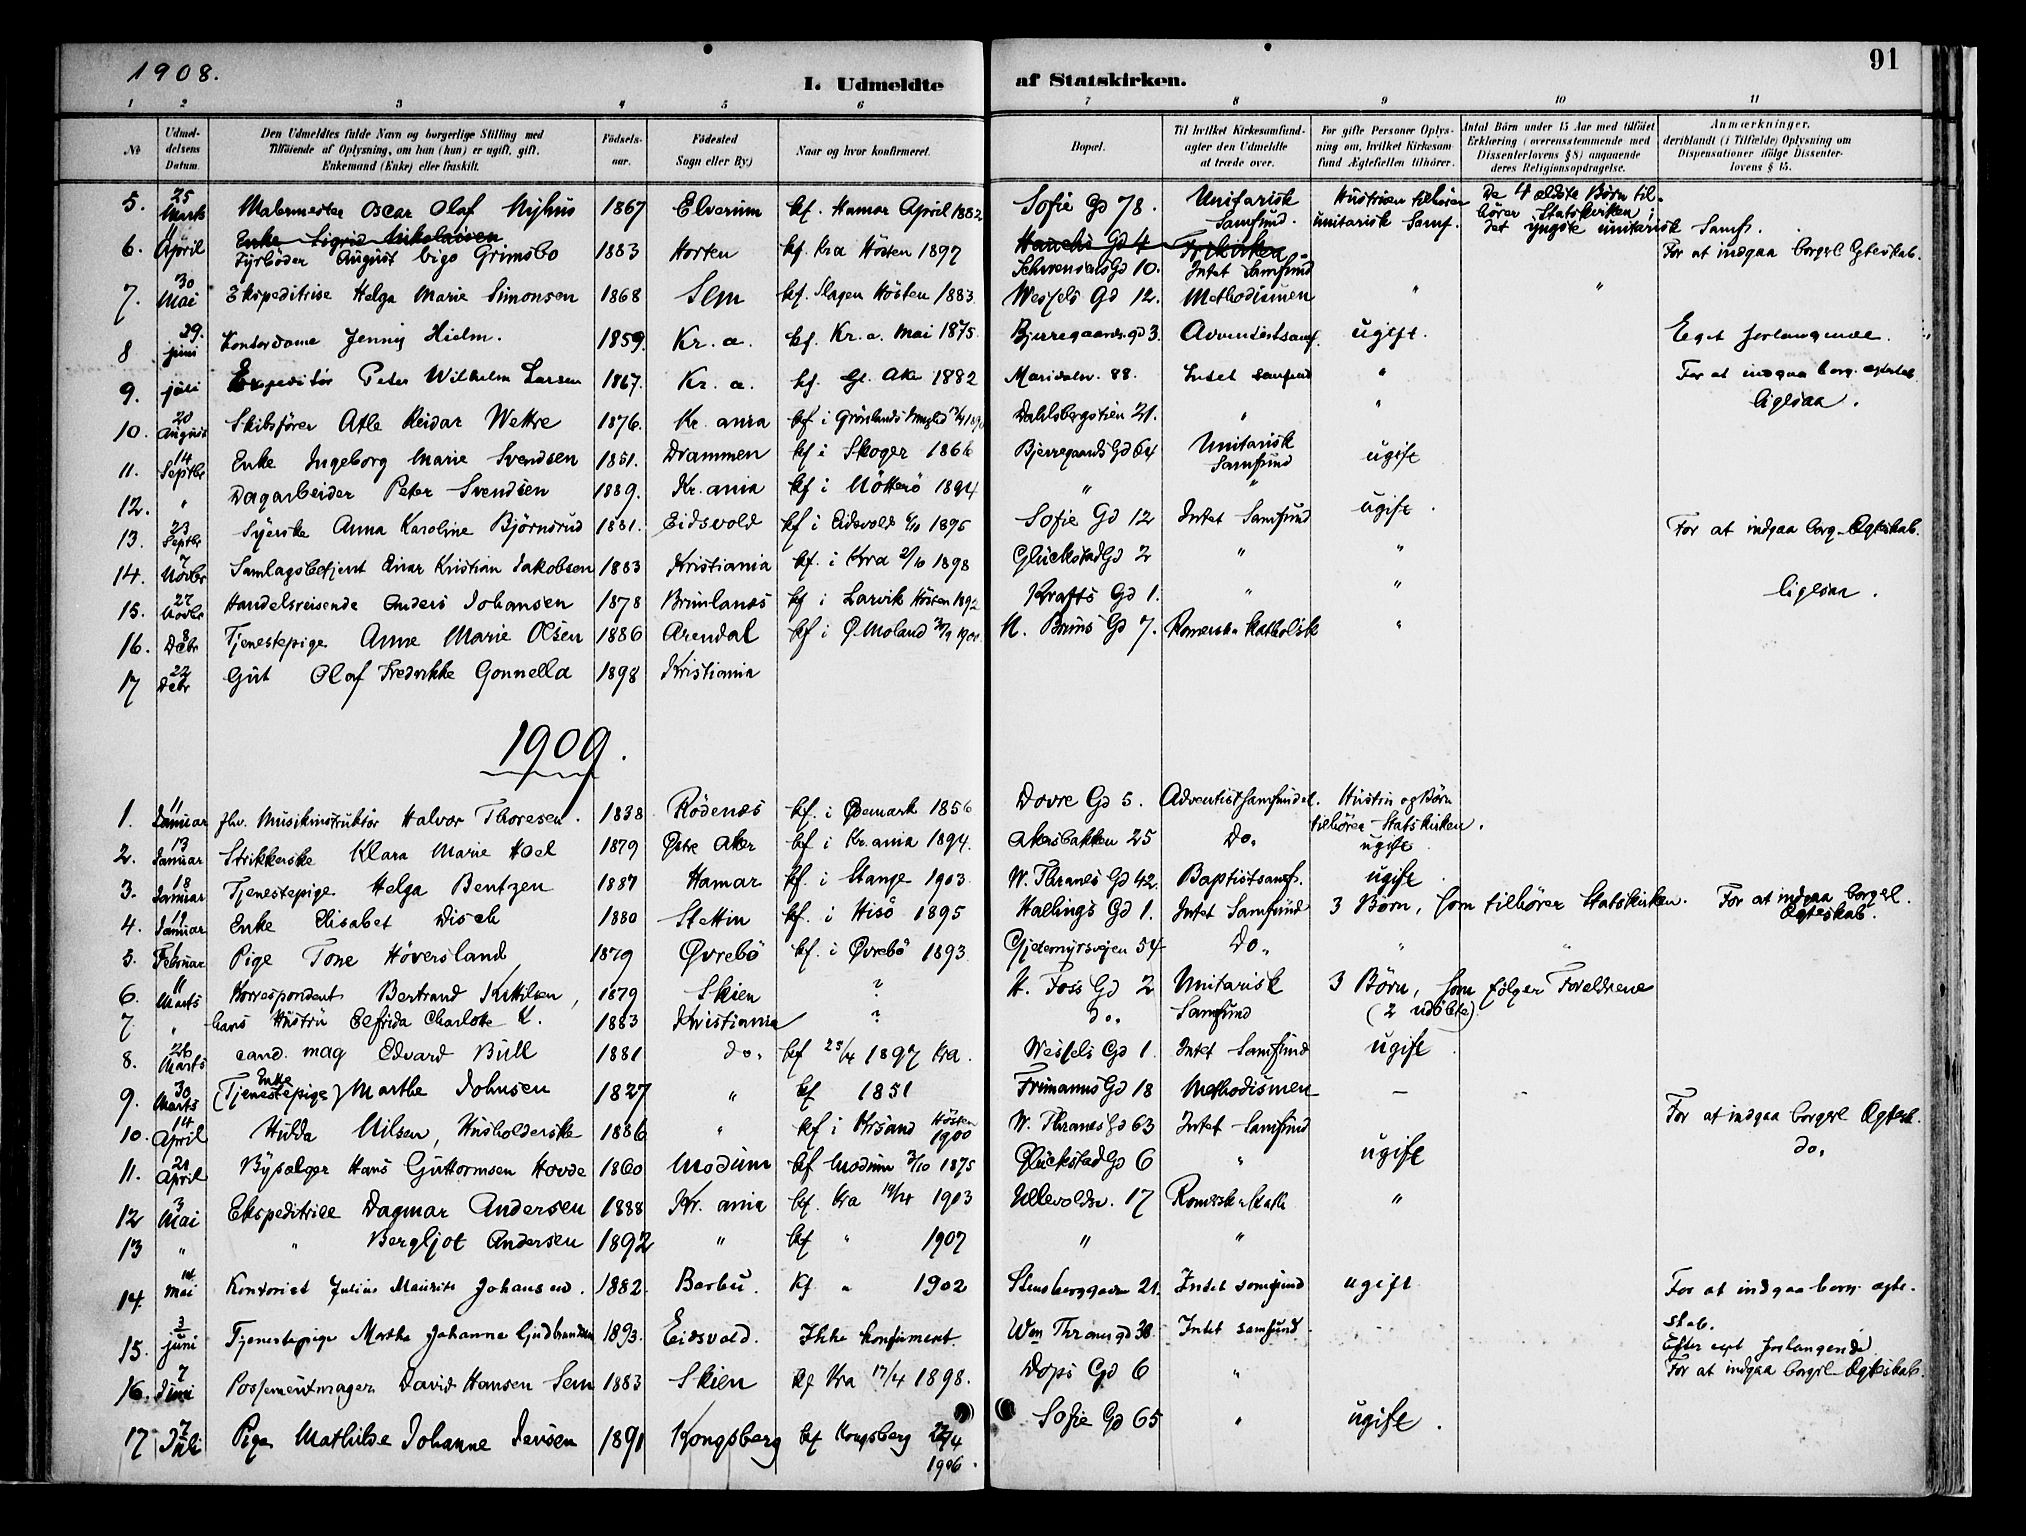 1908.
I. Udmeldte af Statskirken.
91
1 2 3 4 5 6 7 8 9 10 11
No
Udmel-
delsens
Datum.
Den Udmeldtes fulde Navn og borgerlige Stilling med
Tilføiende af Oplysning, om han (hun) er ugift, gift,
Enkemand (Enke) eller fraskilt.
Fødsels-
aar.
Fødested
Sogn eller By.)
Naar og hvor konfirmeret.
Bopæl.
Til hvilket Kirkesamfund-
agter den Udmeldte
at træde over.
For gifte Personer Oplys-
ning om, hvilket Kirkesam-
fund Ægtefællen tilhører.
Antal Børn under 15 Aar med tilføiet
Erklæring (overensstemmende med
Dissenterlovens § 8) angaaende
deres Religionsopdragelse.
Anmærkninger,
deriblandt (i Tilfælde) Oplysning om
Dispensationer ifølge Dissenter-
lovens § 15.
5. 25 Marts Malermester Oscar Olaf Myhus 1867 Elverum kf. Hamar April 1882 Sofie Gd 78. Unitarisk Samfund. Hustruen tilhører unitarisk Samf. De 4 ældste Børn til-
hører Statskirken;
det yngste unitarisk Samf.
6. April Enke Sigrid Nikolaisen Hauchs Gd 4 Frikirken
Fyrbøder August Vigo Grimsbo 1883 Horten kf. Kra Hösten 1897 Schwensens Gd 10. Intet Samfund For at indgaa borgerl Ægteskab.
7. 30 Mai Ekspeditrise Helga Marie Simonsen 1868 Sem kf. Slagen Hösten 1883 Wessels Gd 12. Methodismen " "
8 29. juni Kontordame Jenny Hielm. 1859. Kr. a. kf. Kr. a. Mai 1875. Bjerregaards gd 3. Adventistsamf. ugift. Eget forlangende.
9. juli Expeditör Peter Wilhelm Larsen 1867. Kr. a. kf. Gl. Aker 1882 Maridalsv. 88. Intet samfund " For at indgaa borg. ægtesk.
10. 20 August Skibsfører Atle Reidar Wettre 1876. Kr. ania kf i Grönlands Dahlsbergstien 21. " " ligesaa.
11. 14 Septbr Enke Ingeborg Marie Svendsen 1851. Drammen kf i Skoger 1866 Bjerregaards Gd 64 Unitarisk Samfund ugift
12. " Dagarbeider Peter Svendsen 1889. Kr. ania kf i Nötterö 1894 " " ugift.
13. 23 Septbr Syerske Anna Karoline Björnsrud 1881. Eidsvold kf i Eidsvold 1895 Sofie Gd 12 Intet Samfund For at indgaa borg. Ægteskab.
14. 7 Novbr Samlagsbetjent Einar Kristian Jakobsen 1883 Kristiania kf. i Kra 2/10 1898 Glückstad Gd 2 " "
15. 27 Novbr Handelsreisende Anders Johansen 1878 Brunlanes kf i Larvik Hösten 1892 Krafts Gd 1. " " ligesaa.
16. 8 Debr Tjenestepige Anne Marie Olsen 1886 Arendal kf i Ø. Moland N. Bruns Gd 7. Romersk Katholsk "
17 22 Debr Gut Olaf Fredrikke Gonnella 1898 Kristiania
1909.
1. 11 Januar fhv. Musikinstruktör Halvor Thoresen. 1838 Rödenæs kf. i Øemark 1856 Dovre Gd 5. Adventistsamfundet. Hustru og Börn
tilhører Statskirken.
2. 13 Januar Strikkerske Klara Marie Hoel 1879 Østre Aker kf i Kr. ania 1894. Akersbakken 25 Do. ugift.
3. 18 Januar Tjenestepige Helga Bentzen 1887 Hamar kf. i Stange 1903 W. Thranes Gd 42. Baptistsamf. ugift.
4. 19 Januar Enke Elisabet Disch 1880 Stettin kf. i Hisö 1895 Hallings Gd 1. Intet Samfund 3 Børn, som tilhörer Statskirken. For at indgaa borgerl.
Ægteskab.
5. 1 Februar Pige Tone Höversland 1879 Øvrebö kf. i Øvrebö 1893. Gjetemyrsveien 54 Do. " "
6. 11 Marts Korrespondent Bertrand Kittilsen, 1879 Skien ? N. Foss Gd 2 Unitarisk Samfund 3 Börn, som følger Forældrene
(2 udöbte)
7. " hans Hustru Elfrida Charlotte K. 1883 Kristiania ? do.
8. 26 Marts cand. mag Edvard Bull 1881 do. kf 25/4 1897 Kra. Wessels Gd 1. Intet Samfund ugift.
9. 30 Marts Enke (Tjenestepige) Marthe Johnsen 1827 " kf 1851 Frimanns Gd 18 Methodismen –
10. 14 April Hulda Nilsen, Husholderske 1886 " kf i Krsand Hösten 1900 W. Thranes Gd 63 Intet Samfund For at indgaa borgerl Ægtesk.
11. 21 April Bysælger Hans Guttormsen Hovde 1860 Modum kf Modum 3/10 1875 Glückstad Gd 6 " ugift do.
12 3 Mai Ekspeditrice Dagmar Andersen 1888 Kr. ania kf. Kra 19/4 1903 Ullevoldsv. 17 Romersk Kath "
13 " " Bergljot Andersen 1892 " kf " 1907 " "
14. Mai Kontorist Julius Mauritz Johansen. 1882. Barbu. Kf " 1902 Stensberggaden 21. Intet samfund ugift For at indgaa borg. ægte-
skab.
15. 3 juni Tjenestepige Martha Johanne Gudbrandsen 1893. Eidsvold. Ikke konfirmert. Wm Thranes gd 38. Intet samfund. Efter eget forlangende
16. 7 Juni Possementmager David Hansen Sem 1883 Skien kf Kra 17/4 1898. Dops Gd 6 " For at indgaa borgerl. Ægteskab.
17 2 Juli Pige Mathilde Johanne Jensen 1891 Kongsberg kf Kongsberg 22/4
1906. Sofie Gd 65 " ugift.